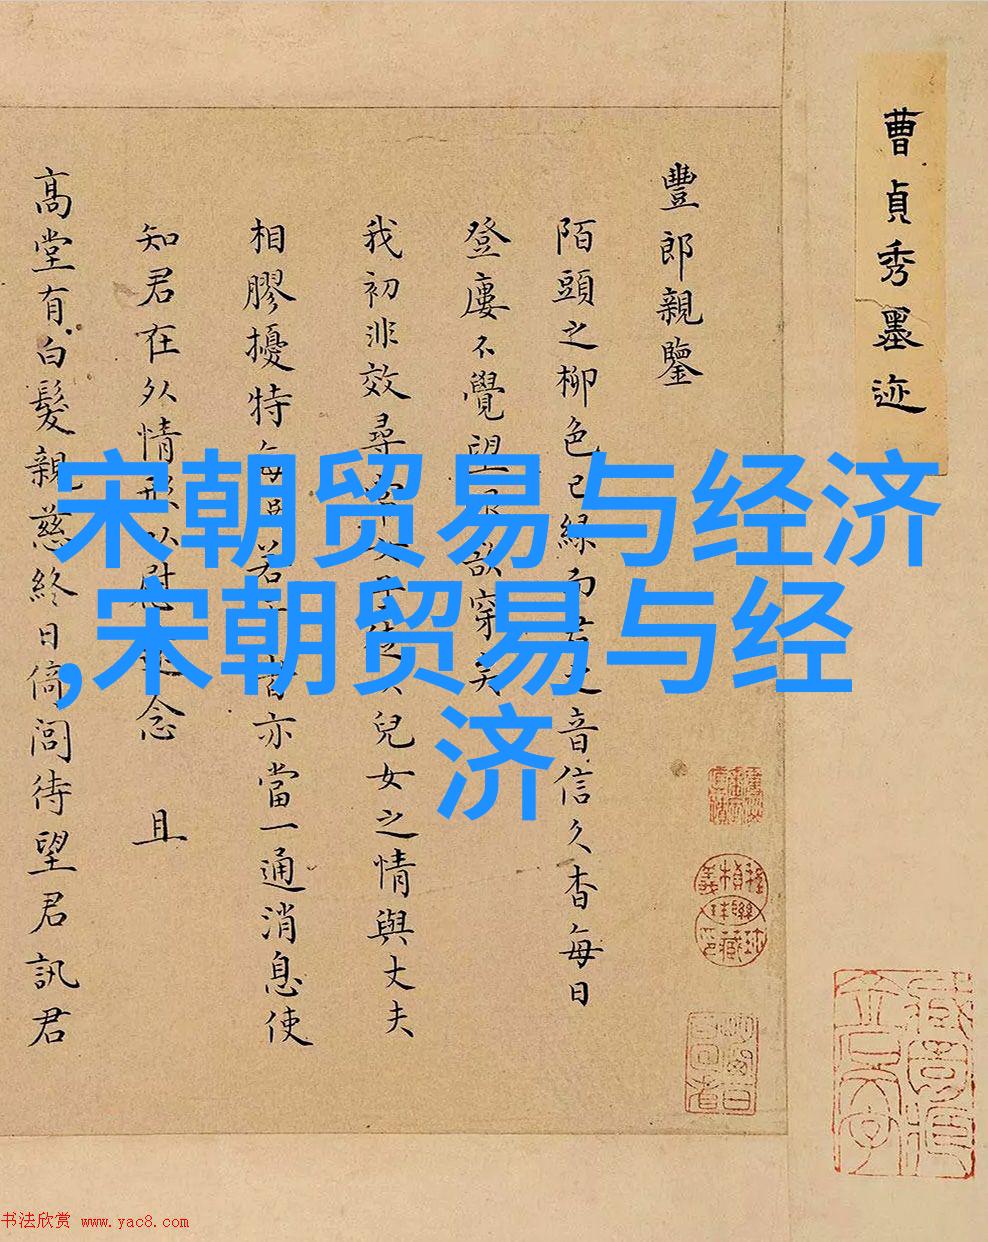 曹貞秀墨迹
豐郎親鑒
陌頭之柳色已緑而君之音信久杳每日
登廔不覺望眼欲穿矣
我初非效尋常女子徒兒女之情與丈夫
相膠擾特每若亦當一通消息使
知君在外情形以慰念 且
高堂有白髮親慈終日倚閭待望君訊君
宋朝贸易与经济
,宋朝贸易与经
济
书法欣赏 www.yac8.com